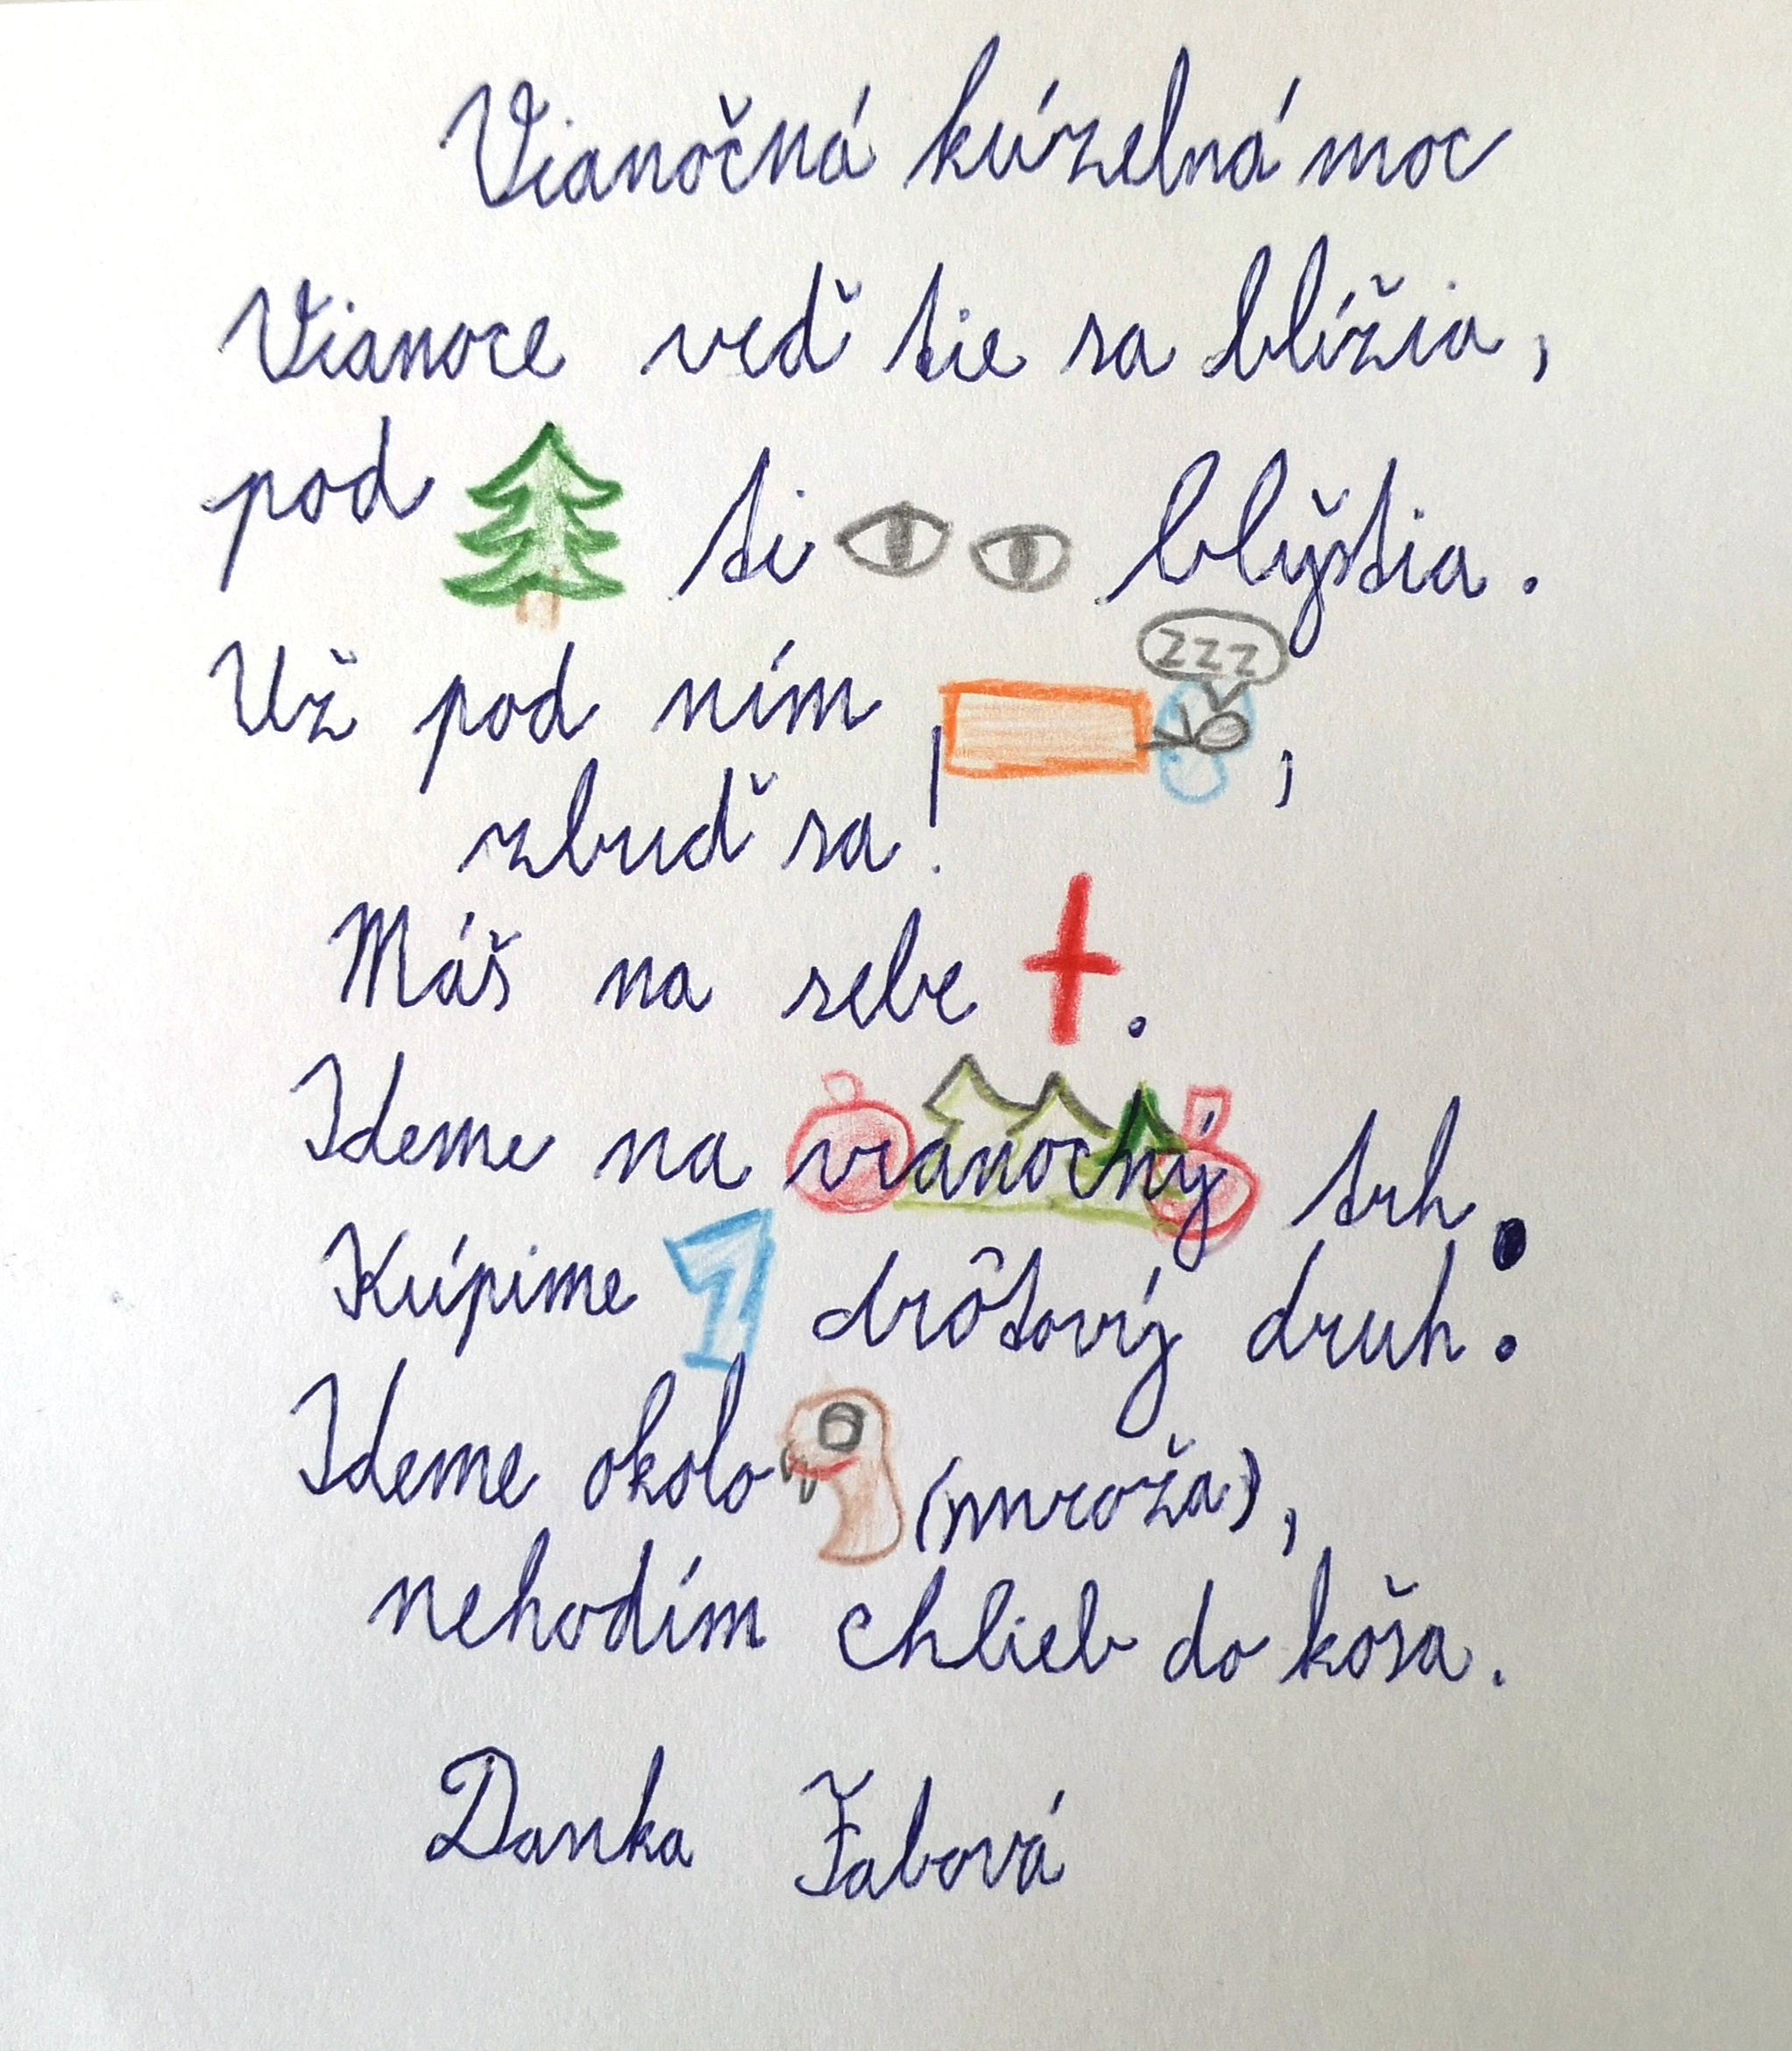 Vianočná kúzelná moc
Vianoce veď tie sa blížia,
pod ti blýštia.
Už pod ním zzz,
zbuď sa!
Máš na sebe.
Ideme na vianočný trh.
Kúpime 1 drôtový druh.
Ideme okolo (mroža),
nehodím chlieb do koša.
Danka Žabová